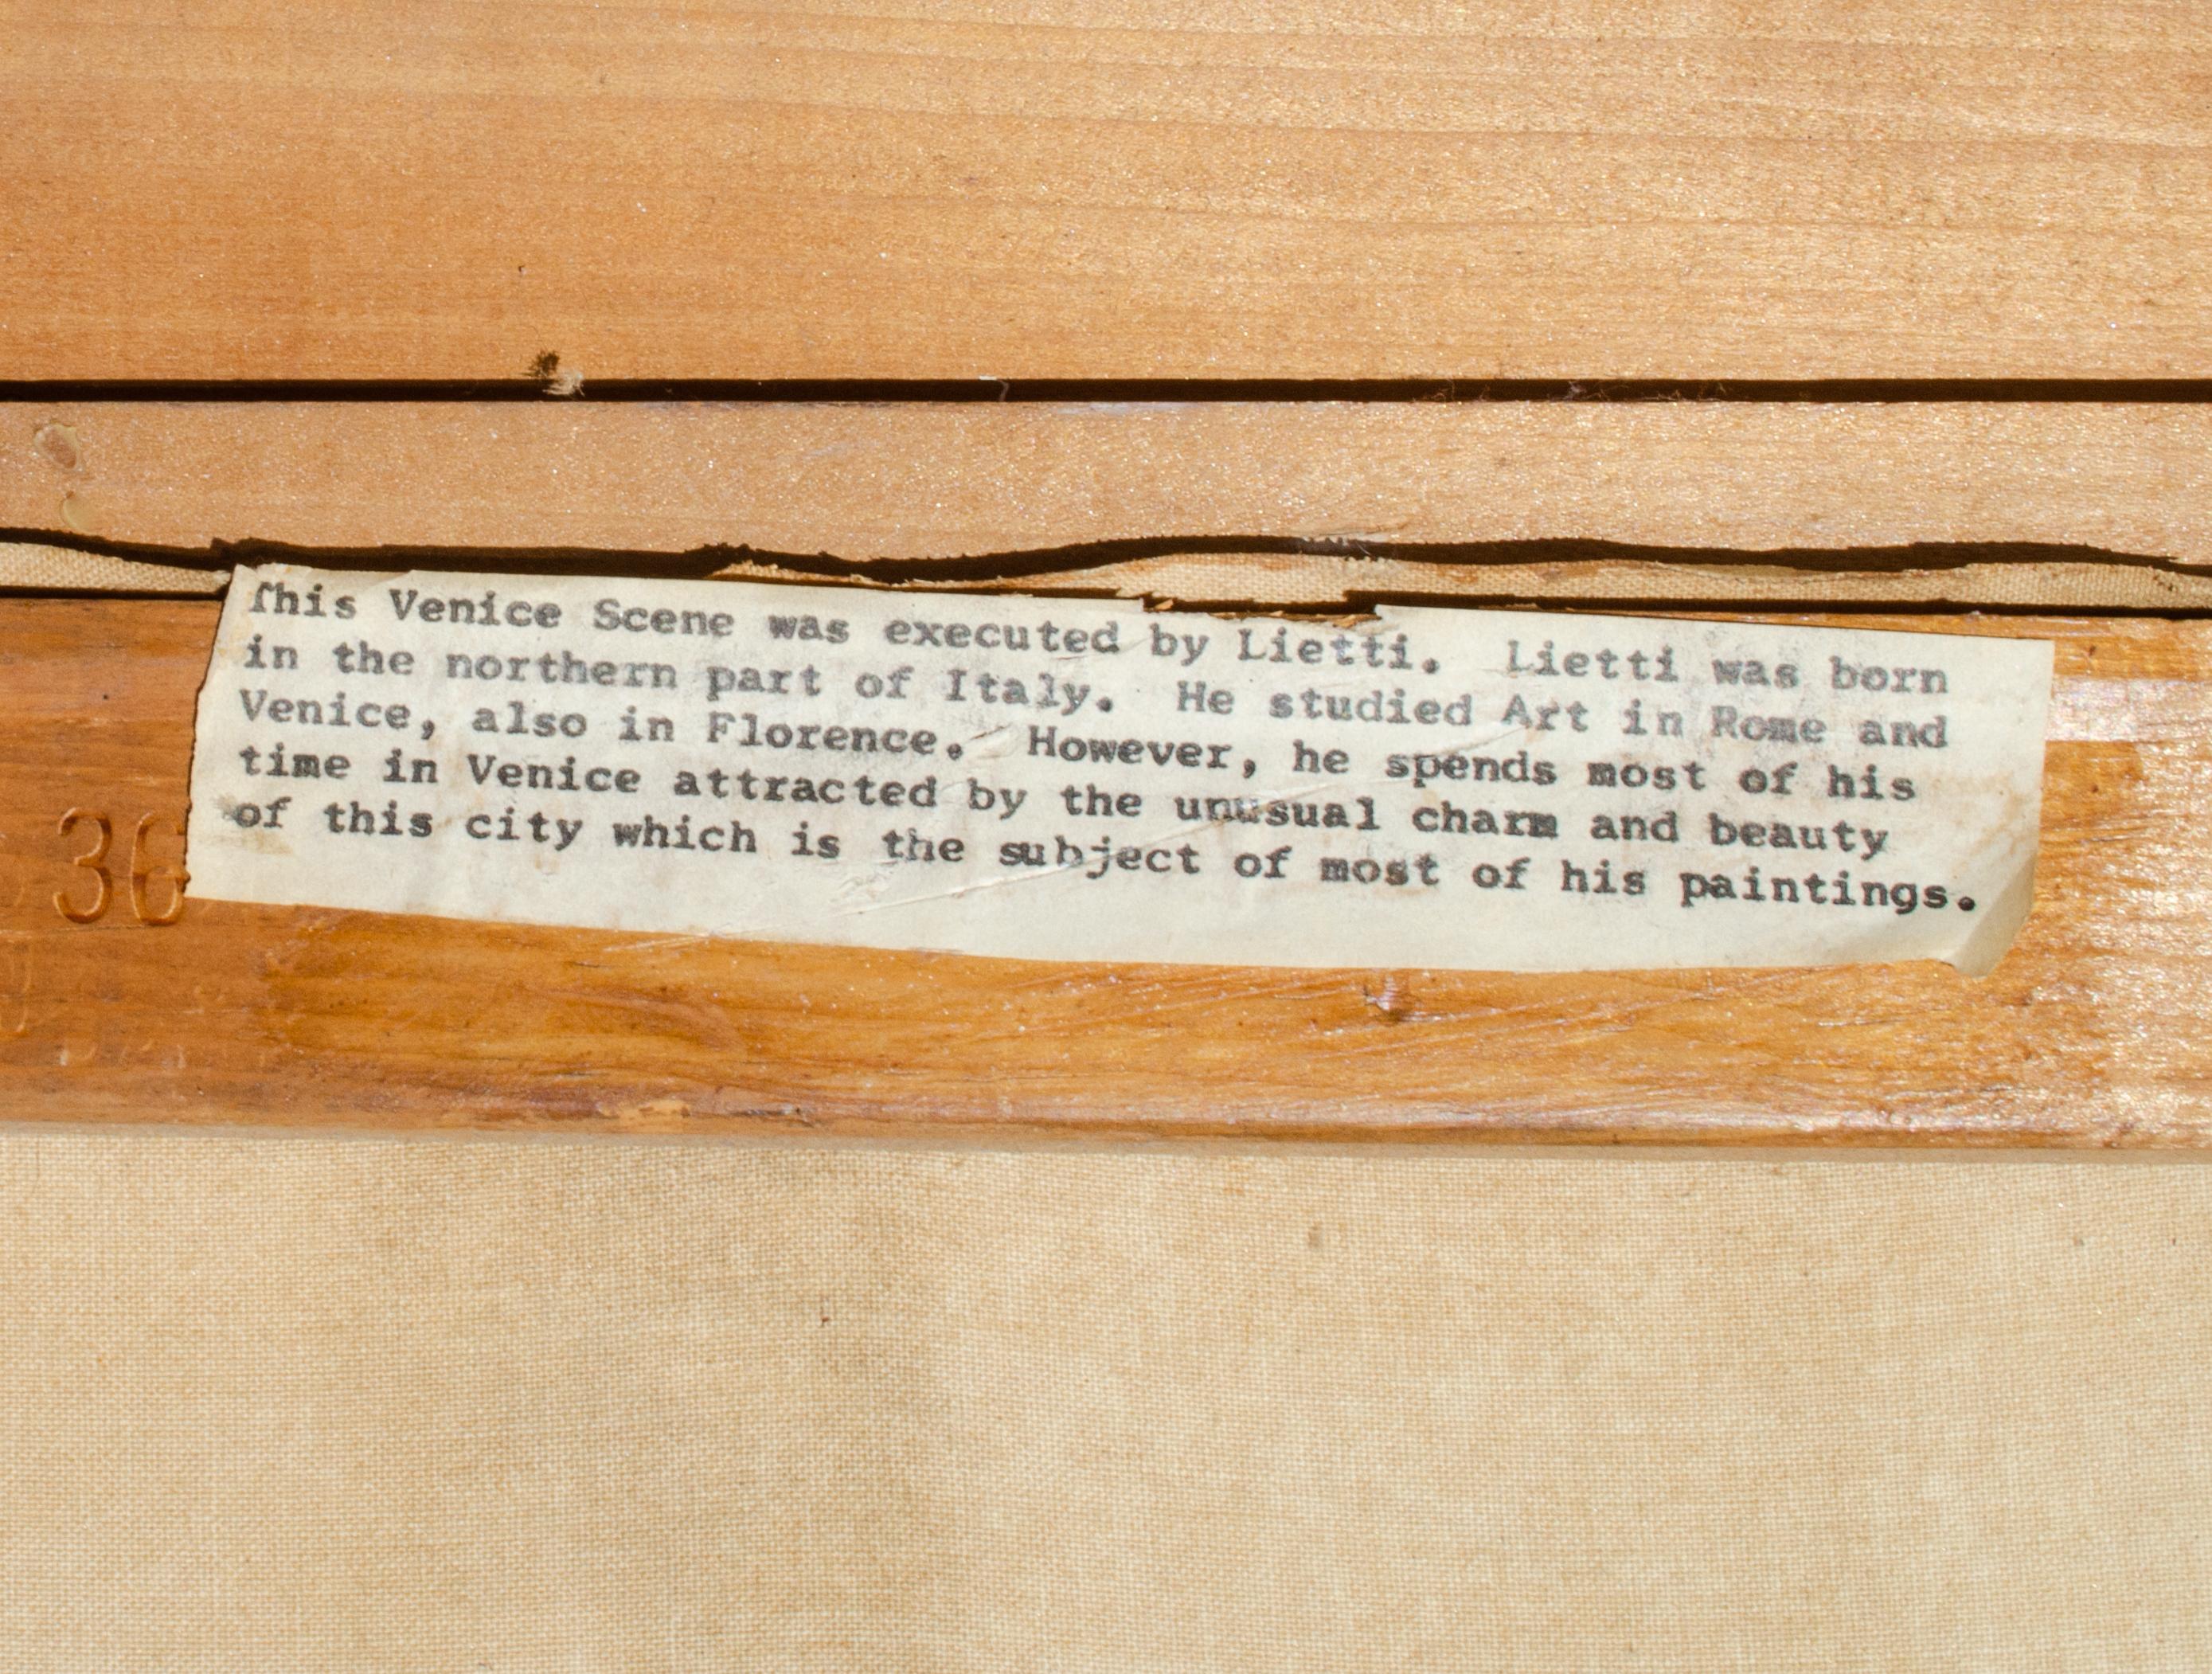 This Venice Scene was executed by Lietti. Lietti was born
in the northern part of Italy. He studied Art in Rome and
Venice, also in Florence. However, he spends most of his
time in Venice attracted by the unusual charm and beauty
of this city which is the subject of most of his paintings.
36